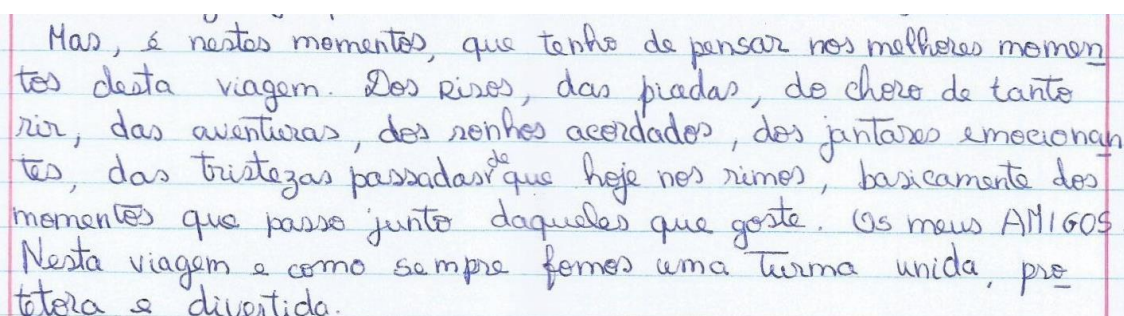 Mas, é nestes momentos, que tenho de pensar nos melhores momen
tos desta viagem. Dos risos, das piadas, do choro de tanto
rir, das aventuras, dos sonhos acordados, dos jantares emocionan
tes, das tristezas passadas de que hoje nos rimos, basicamente dos
momentos que passo junto daqueles que gosto. Os meus AMIGOS
Nesta viagem e como sempre fomos uma turma unida, pro
tetora e divertida.